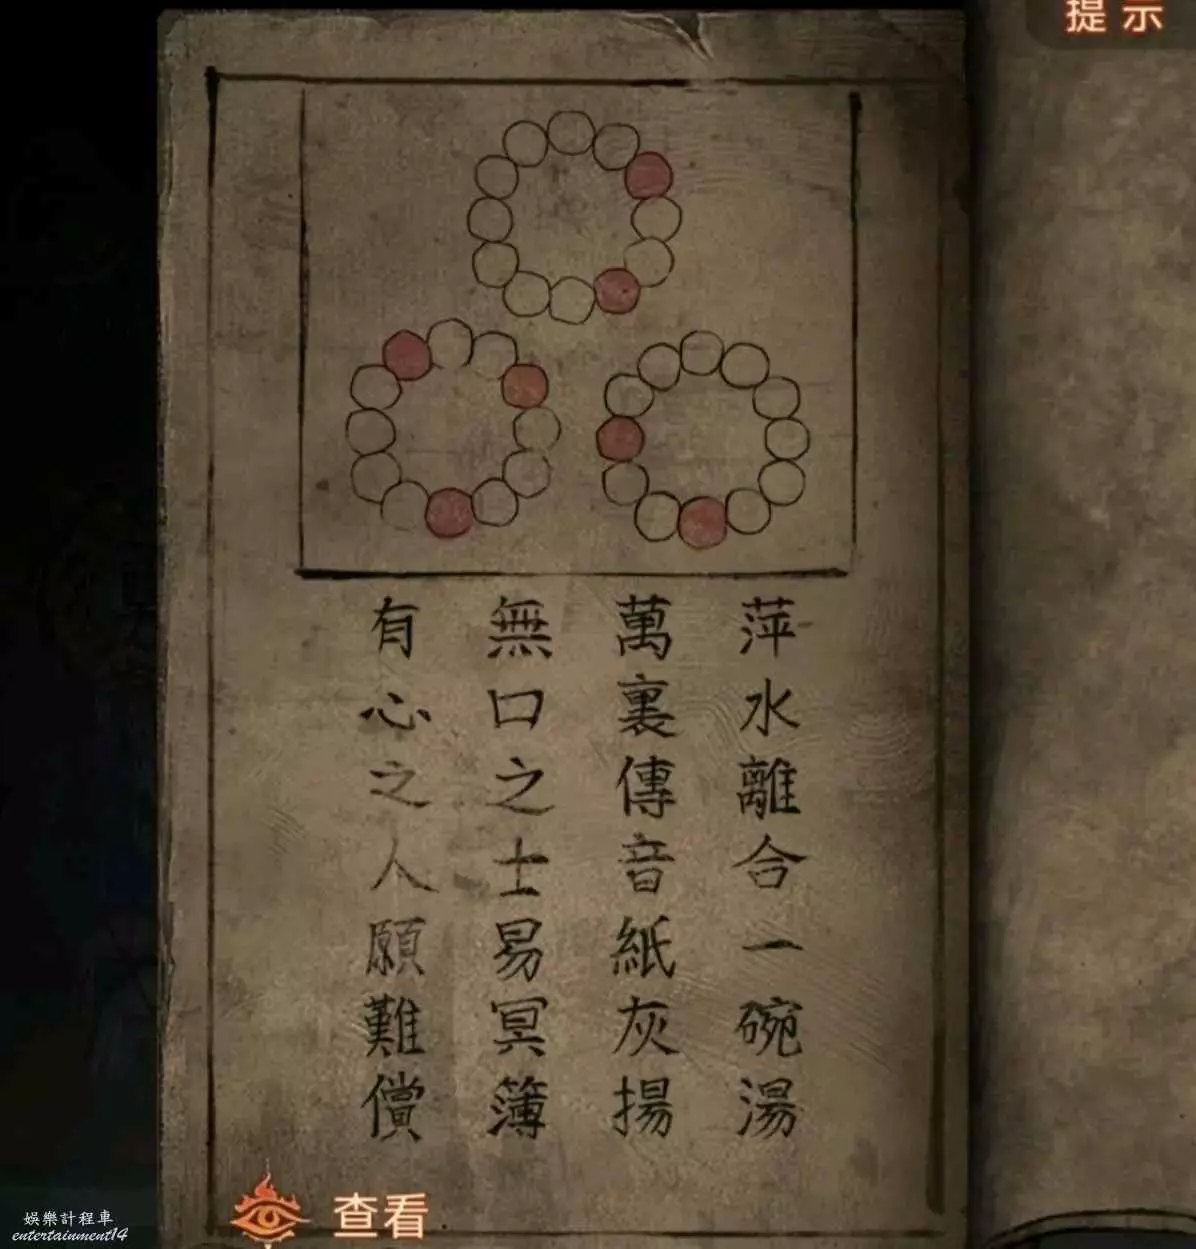 提示
萍水離合一碗湯
萬裏傳音紙灰揚
無口之士易冥簿
有心之人願難償
查看
娛樂計程車
entertainment14